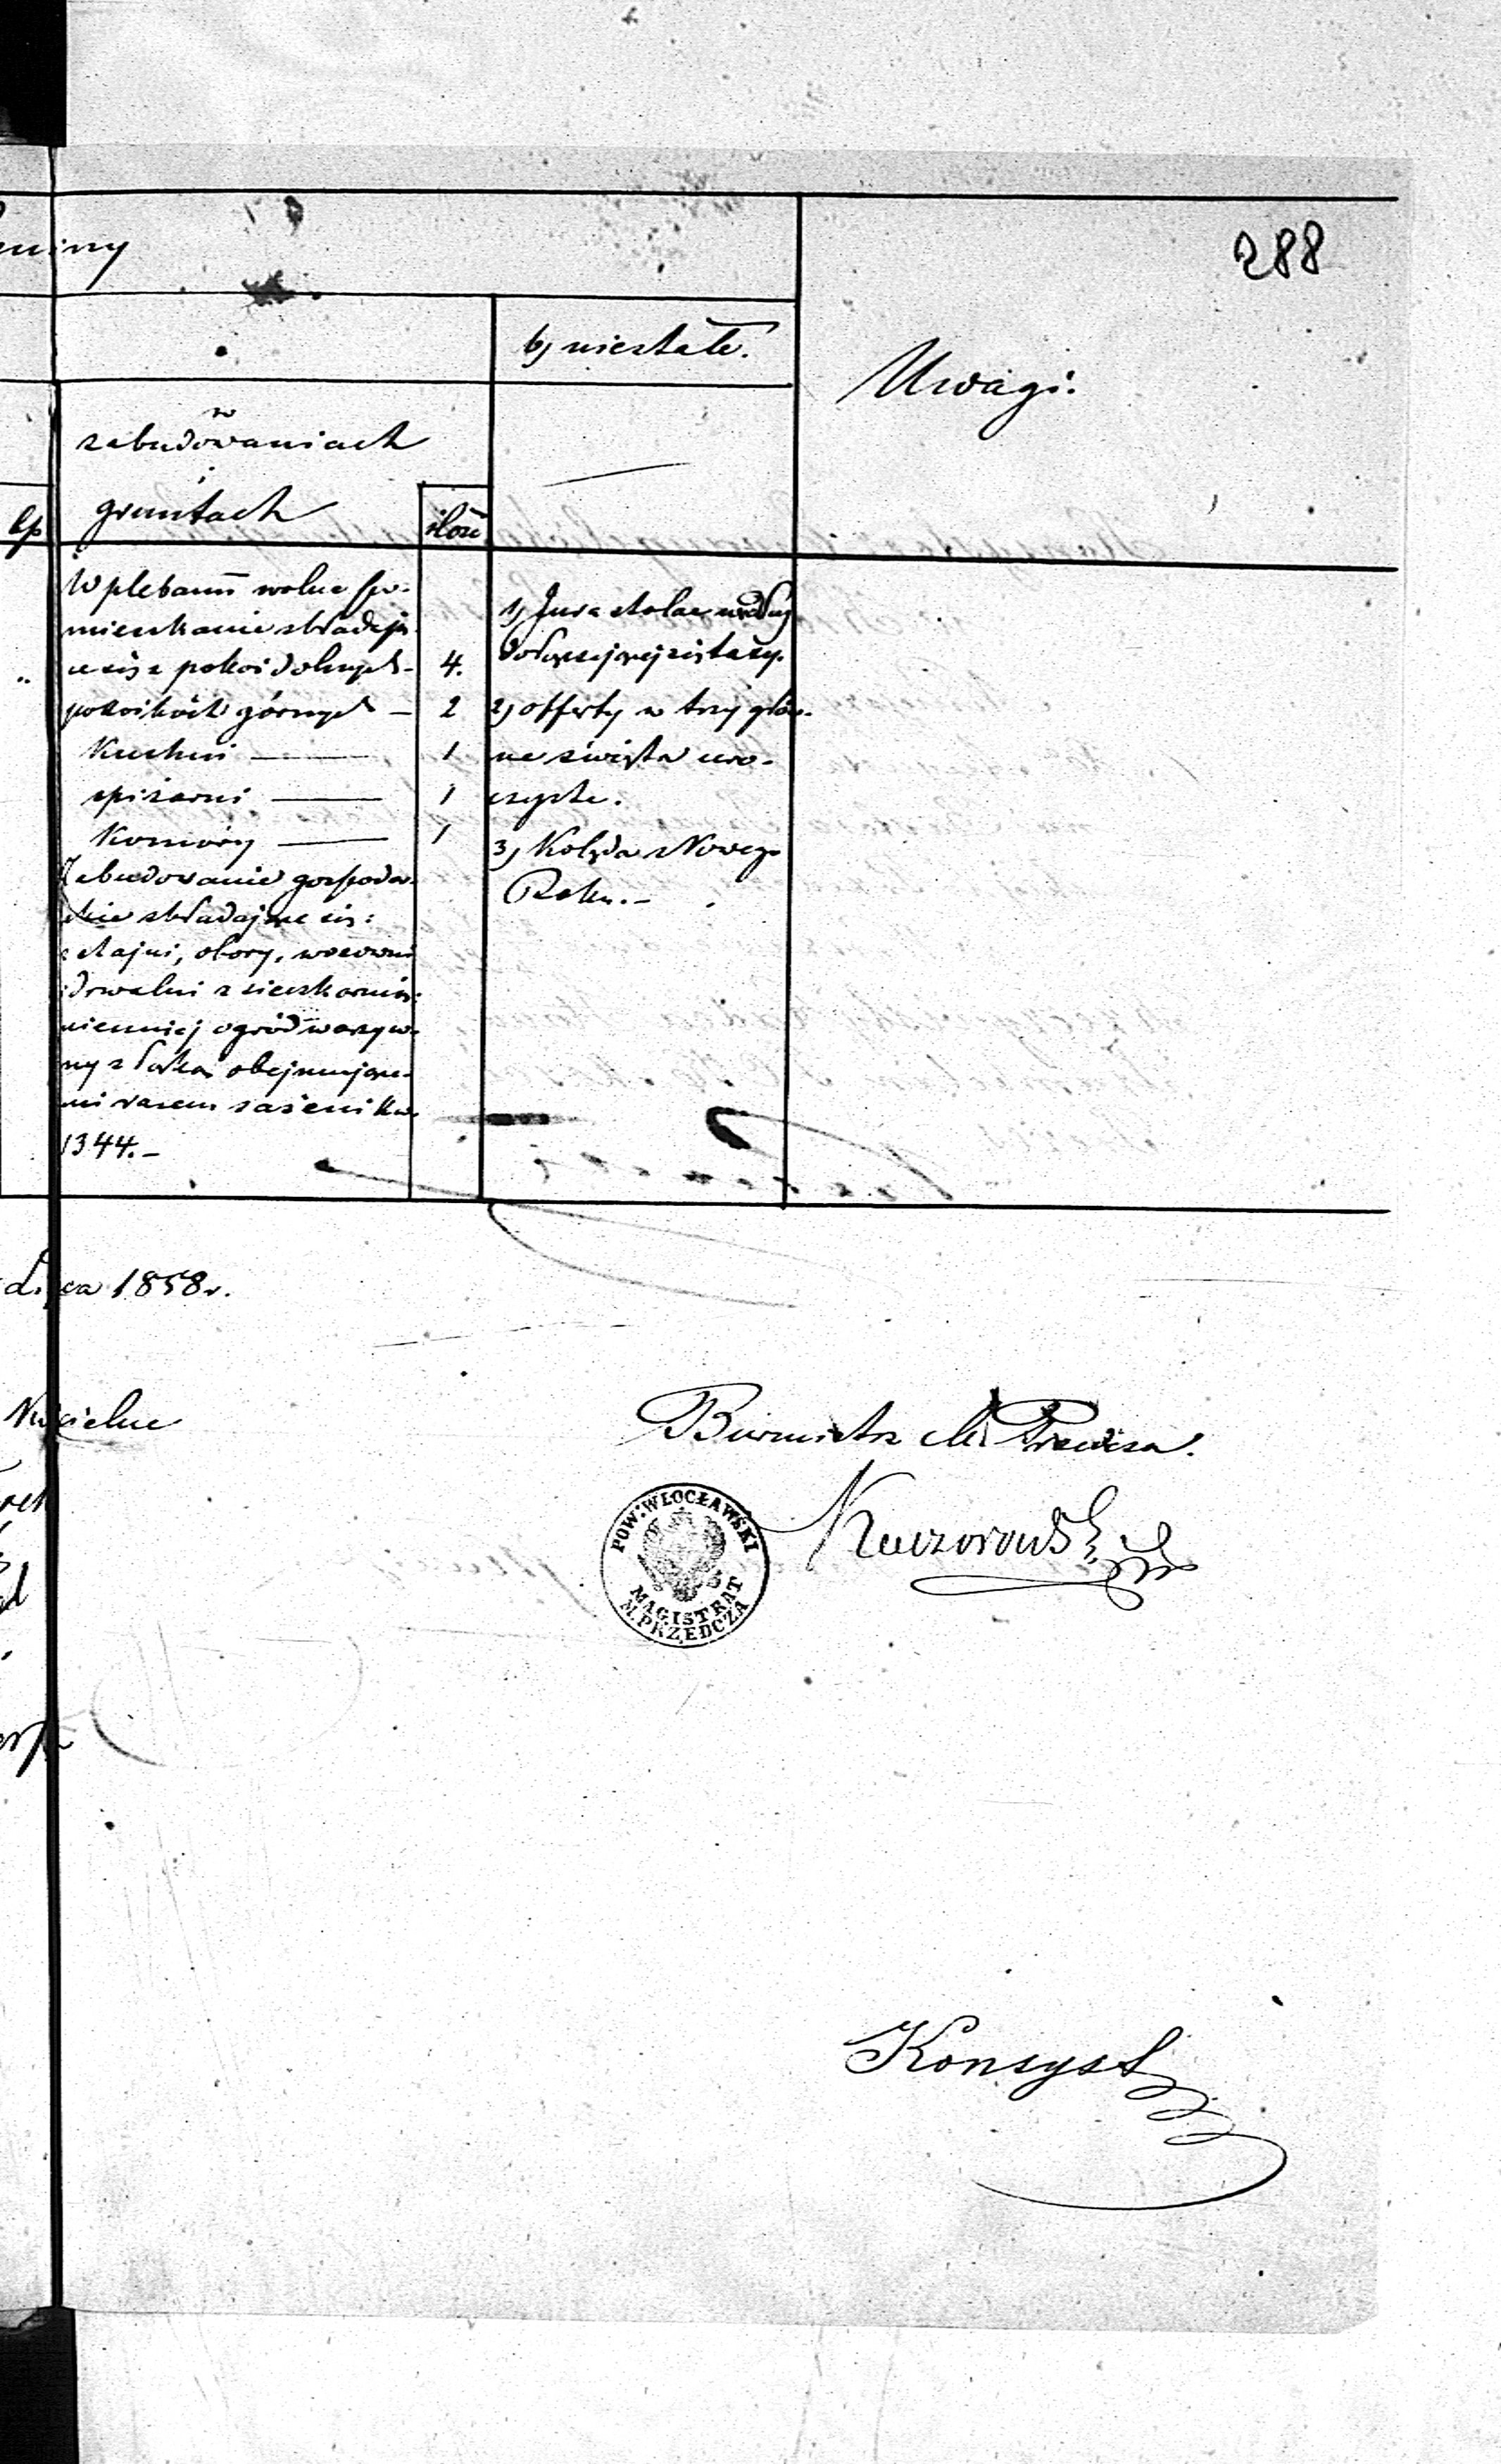 288
b) niestałe.
Uwagi.
w
zabudowaniach
i
gruntach
ilość
W plebanii wolne po-
mieszkanie składają-
ce się z pokoi dolnych - 4.
pokoików górnych — 2
Kuchni — 1
spiżarni — 1
Komory — 1
Zabudowanie gospodar-
skie składające się:
z stajni, obory, wozowni
drwalni z sieczkarnią:
niemniej ogród warzyw-
ny z łąką obejmujące-
mi razem sążeni kw.
1344.-
1) Jura stolae według
dołączonej
2) offerty w trzy głów-
ne święta uro-
czyste.
3) Kolęda z Nowego
Roku.-
Lipca 1858 r.
Burmistrz M. Przedcza.
Kaczorowski
POW: WŁOCŁAWSKI
MAGISTRAT
M. PRZEDCZA
Konsyst